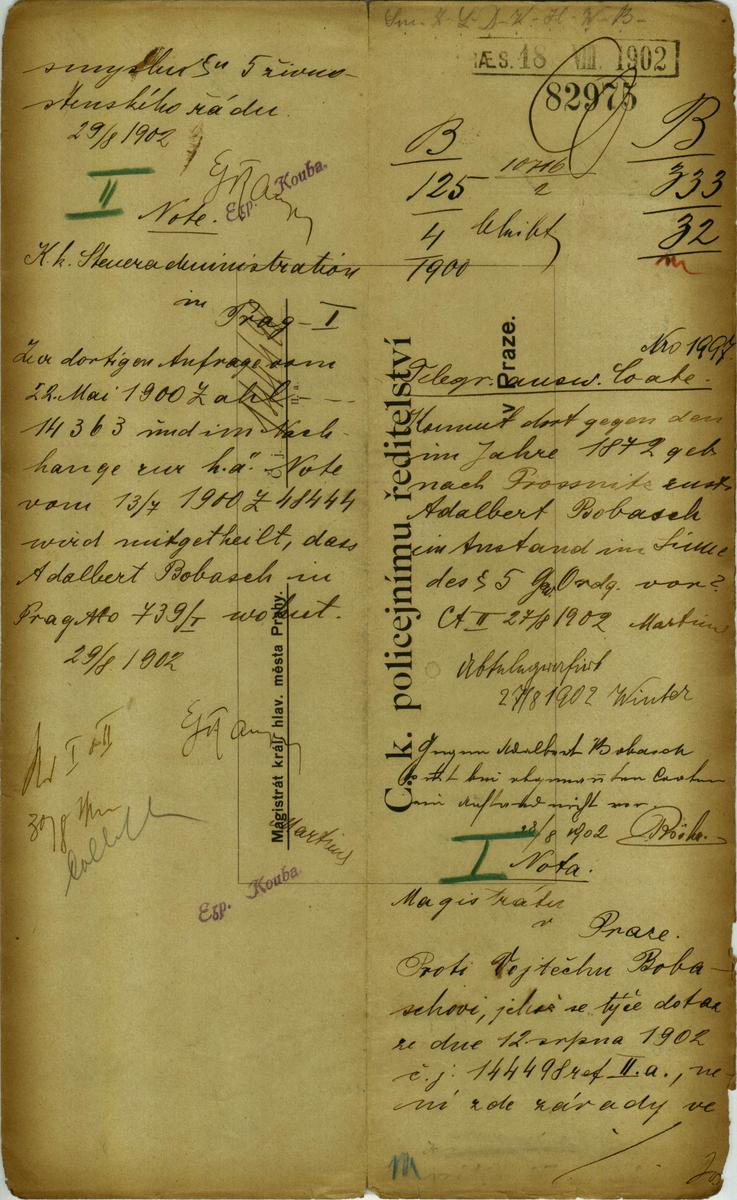 PRÆS. 18 VIII. 1902
82975
B
125
4
1900
10716
2
B
333
32
Nro 1997
Telegr. answ. Coate.
Kommt dort gegen den
im Jahre 1872 geb
nach Prossnitz zust.
Adalbert Bobasch
ein Anstand im Sinne
des § 5 Gew Ordg. vor?
Ct II 27/8 1902
27/8 1902 Winter
Gegen Adalbert Bobasch
ein Anstand nicht vor.
/8 1902
I
Nota.
Magistrátu
v Praze.
Proti Vojtěchu Boba-
schovi, jehož se týče dotaz
ze dne 12 srpna 1902
č. j. 144498 ref II.a., ne-
ní zde závady ve
smyslu § u 5 živno-
stenského řádu.
29/8 1902
Exp. Kouba.
II
Note.
K. k. Steueradministration
in
Prag-I
Zur dortigen Anfrage vom
22. Mai 1900 Zahl
14363 und im Nach-
hange zur h.ä. Note
vom 13/7 1900 Z 48444
wird mitgetheilt, dass
Adalbert Bobasch in
Prag No 739/I wohnt.
29/8 1902
I II
30/8
Martius
Exp. Kouba.
C. k. policejnímu ředitelství
v Praze.
Magistrát král. hlav. města Prahy.